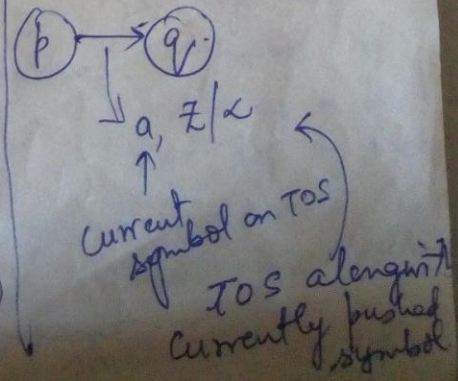 p q
a, Z/α
current
symbol on TOS
TOS alongwith
currently pushed
symbol